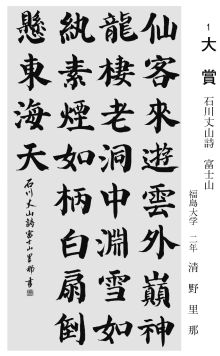 1 大賞 石川丈山詩 富士山
福島大学 二年 清野里那
仙客來遊雲外巔神
龍棲老洞中淵雪如
紈素煙如柄白扇倒
懸東海天
石川丈山詩富士山 里那書